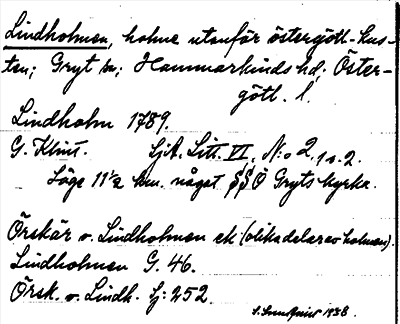 Lindholmen, holme utanför östergötl. kus-
ten; Gryt sn; Hammarkinds hd, Öster-
götl. l.
Lindholm 1789.
G. Klint. SjA. Litt. VI, N:o 2, 1 o. 2.
Läge 11½ km. något SSO Gryts kyrka.
Örskär o. Lindholmen ek (olika delar av holmen).
Lindholmen G. 46.
Örsk. o. Lindh. Sj: 252.
1938.